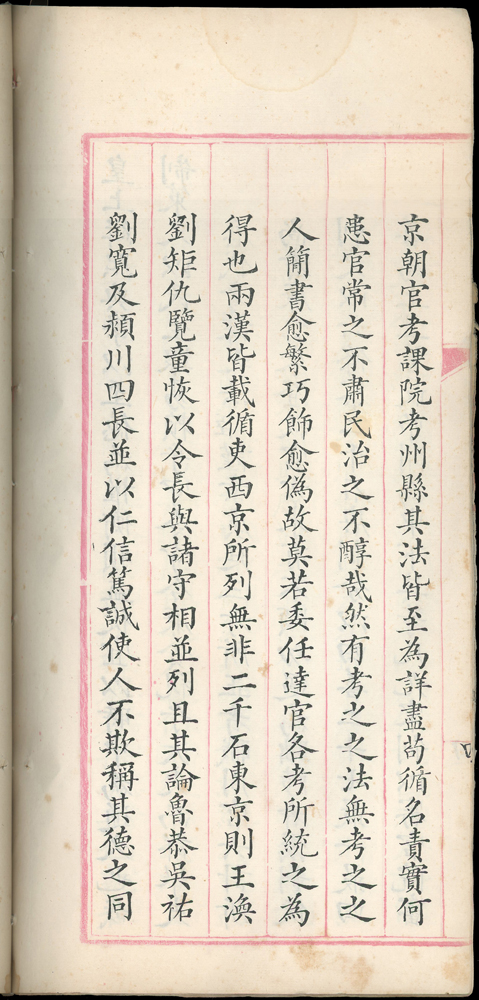 京朝官考課院考州縣其法皆至為詳盡茍循名責實何
患官常之不肅民治之不醇哉然有考之之法無考之之
人簡書愈繁巧飾愈偽故莫若委任達官各考所統之為
得也兩漢皆載循吏西京所列無非二千石東京則王渙
劉矩仇覽童恢以令長與諸守相並列且其論魯恭吳祐
劉寬及潁川四長並以仁信篤誠使人不欺稱其德之同